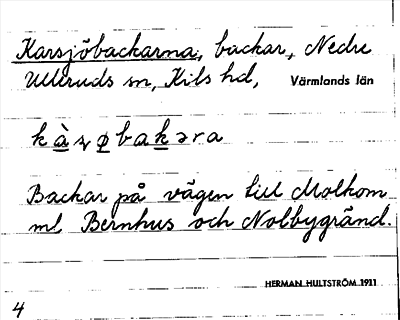 Karsjöbackarna, backar, Nedre
Ulleruds sn, Kils hd, Värmlands län
Backar på vägen till Molkom
ml Bernhus och Nolbygränd.
HERMAN HULTSTRÖM 1911
4